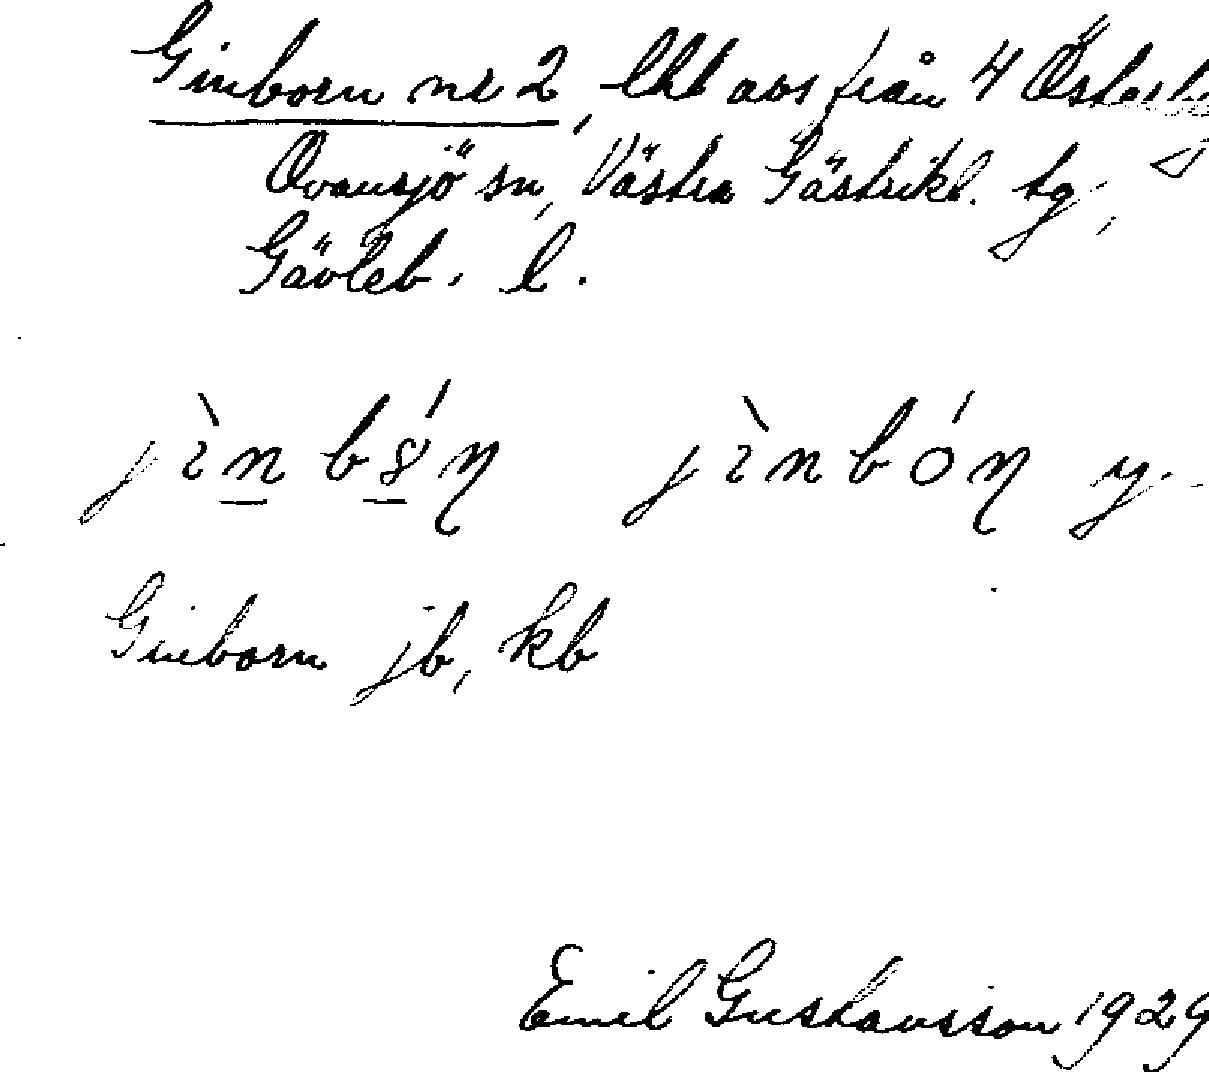 Ginborn nr 2, lht avs från 4 Österby
Ovansjö sn, Västra Gästrikl. tg,
Gävleb. l.
jìnbǿɳ jìnbóɳ y.
Ginborn jb, kb
Emil Gustavsson 1929